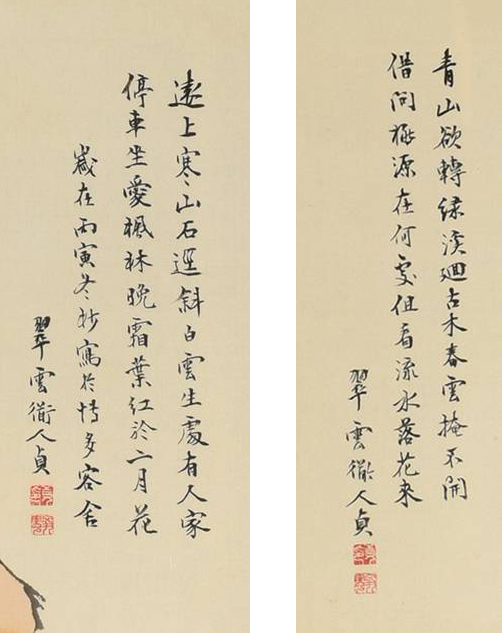 青山欲轉緑溪廻古木春雲掩不開
借問源在何處但看流水落花来
翠雲衜人貞
遠上寒山石逕斜白雲生處有人家
停車坐愛楓林晩霜葉紅於二月花
歳在丙寅冬杪寫於博多客舎
翠雲衜人貞